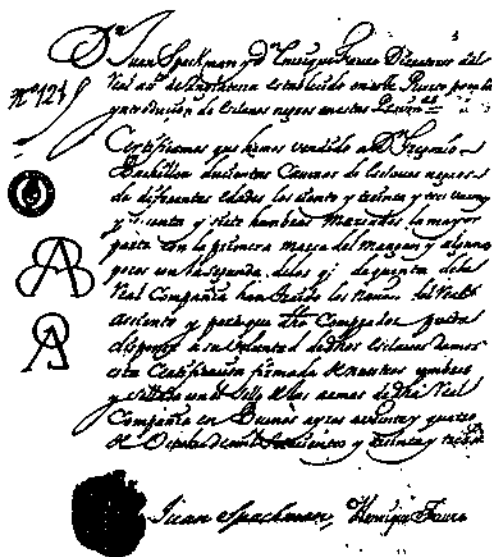 Dn Juan Spackman y Dn Enrique Faure Directores del
Real asto de Inglaterra establecido en este Puerto para la
yntroducion de esclavos negros en estas
No 121
Certificamos que hemos vendido a Dn
ducientas Cavezas de esclavos negros
de diferentes edades los ciento y treinta y tres
y siete hembras Marcados la mayor
parte con la primera marca del margen y algunos
pocos con la segunda, delos qe de quenta dela
Real Compañia han traido los del Real
Assiento y para que dho Comprador pueda
disponer a su voluntad de dhos esclavos damos
esta Certificacion firmada de nuestros nombres
y sellada con el Sello de las armas de dha Real
Compañia en Buenos ayres a veinte y quatro
de de mil Setecientos y treinta y
Juan Spackman Henrique Faure